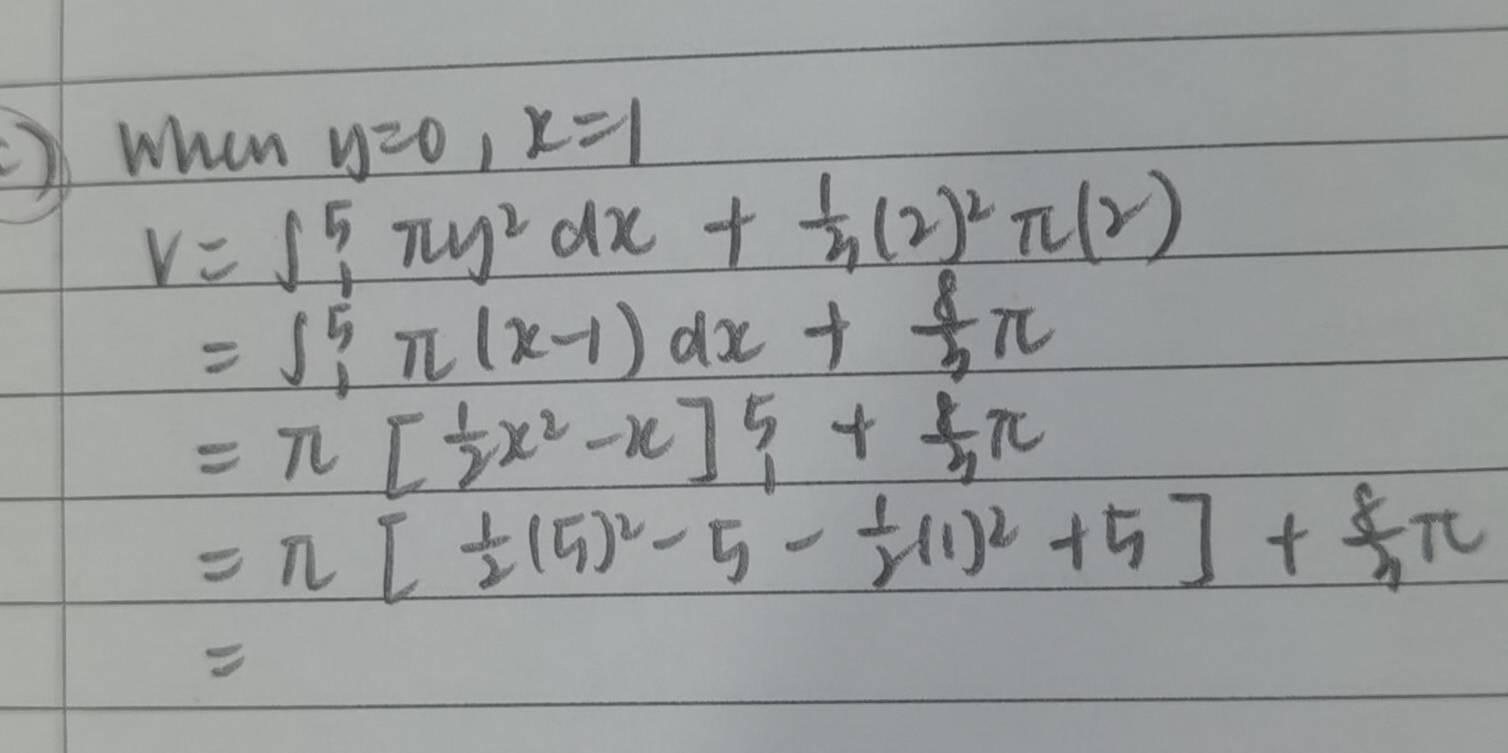 c) When y=0, x=1
V = ∫₁⁵ πy² dx + 1/3 (2)² π(2)
= ∫₁⁵ π(x-1) dx + 8/3 π
= π [1/2 x² - x]₁⁵ + 8/3 π
= π [1/2 (5)² - 5 - 1/2 (1)² + 5] + 8/3 π
=